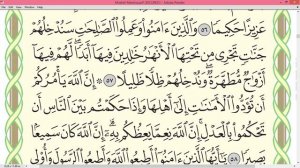 عَزِيزًا حَكِيمًا ٥٦ وَٱلَّذِينَ ءَامَنُوا۟ وَعَمِلُوا۟ ٱلصَّٰلِحَٰتِ سَنُدْخِلُهُمْ
جَنَّٰتٍ تَجْرِى مِن تَحْتِهَا ٱلْأَنْهَٰرُ خَٰلِدِينَ فِيهَآ أَبَدًا لَّهُمْ فِيهَآ
أَزْوَٰجٌ مُّطَهَّرَةٌ وَنُدْخِلُهُمْ ظِلًّا ظَلِيلًا ٥٧ إِنَّ ٱللَّهَ يَأْمُرُكُمْ
أَن تُؤَدُّوا۟ ٱلْأَمَٰنَٰتِ إِلَىٰٓ أَهْلِهَا وَإِذَا حَكَمْتُم بَيْنَ ٱلنَّاسِ أَن
تَحْكُمُوا۟ بِٱلْعَدْلِ إِنَّ ٱللَّهَ نِعِمَّا يَعِظُكُم بِهِۦٓ إِنَّ ٱللَّهَ كَانَ سَمِيعًۢا
بَصِيرًا ٥٨ يَٰٓأَيُّهَا ٱلَّذِينَ ءَامَنُوٓا۟ أَطِيعُوا۟ ٱللَّهَ وَأَطِيعُوا۟ ٱلرَّسُولَ وَأُو۟لِى